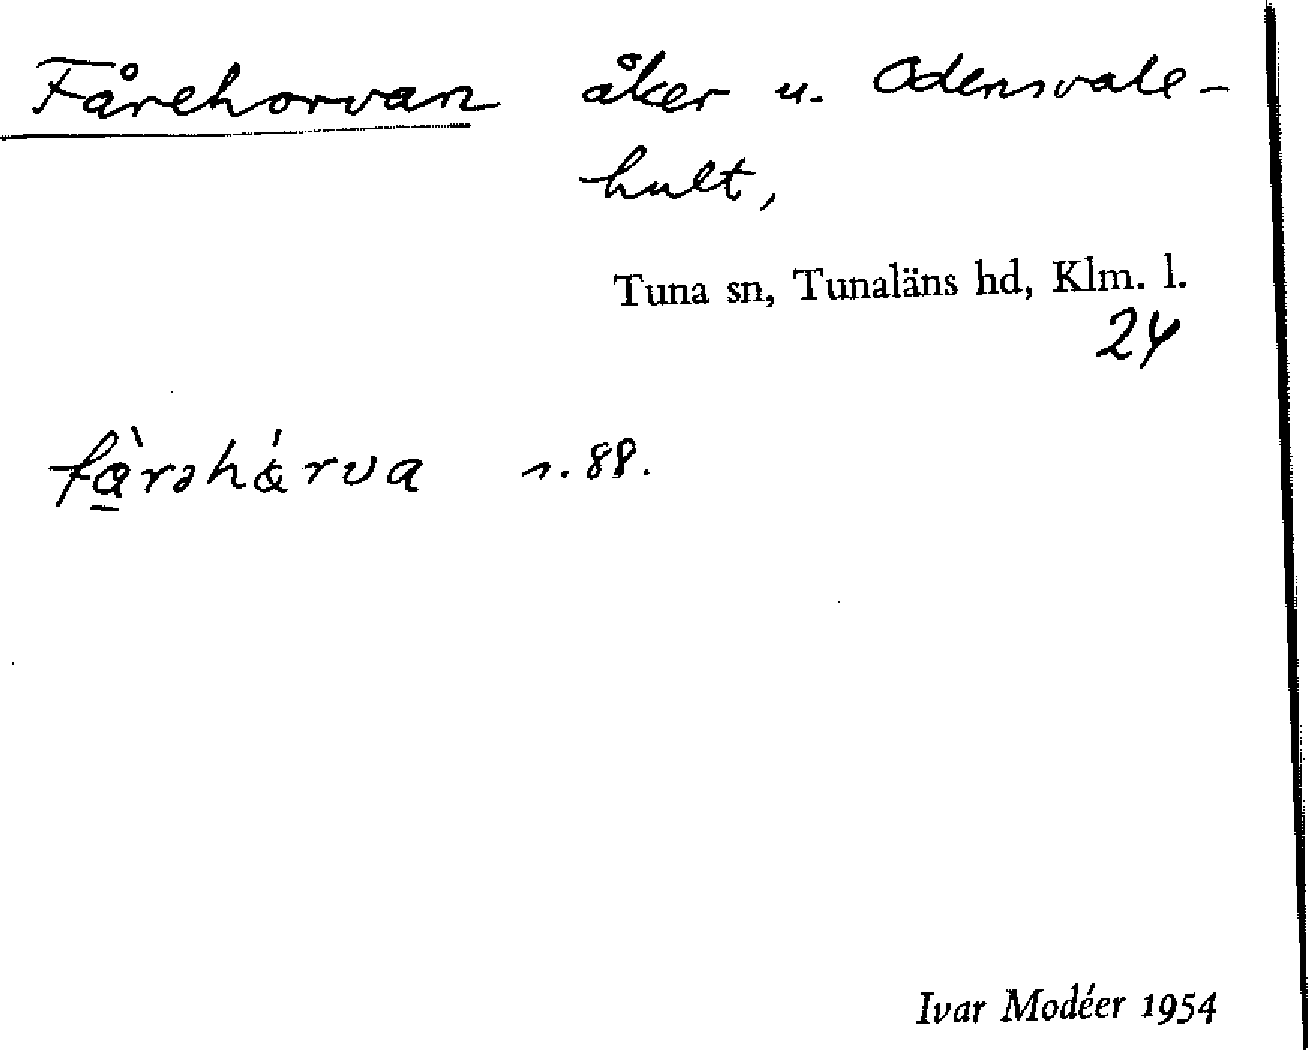 Fårehorvan åker u. Odensvale-
hult,
Tuna sn, Tunaläns hd, Klm. l.
24
s. 88.
Ivar Modéer 1954